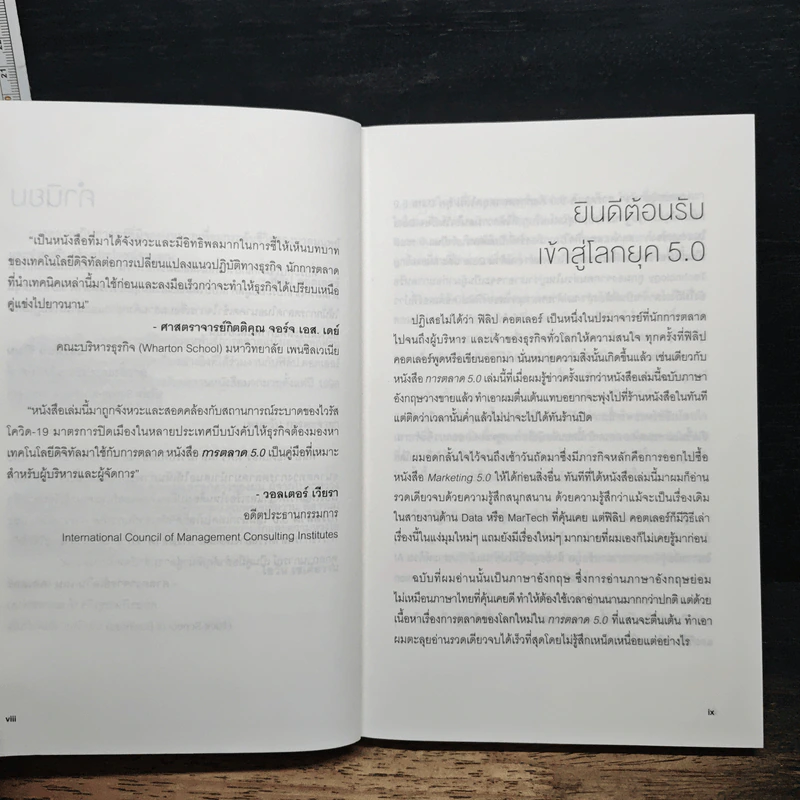 “เป็นหนังสือที่มาได้จังหวะและมีอิทธิพลมากในการชี้ให้เห็นบทบาท
ของเทคโนโลยีดิจิทัลต่อการเปลี่ยนแปลงแนวปฏิบัติทางธุรกิจ นักการตลาด
ที่นำเทคนิคเหล่านี้มาใช้ก่อนและลงมือเร็วกว่าจะทำให้ธุรกิจได้เปรียบเหนือ
คู่แข่งไปยาวนาน”
- ศาสตราจารย์กิตติคุณ จอร์จ เอส. เดย์
คณะบริหารธุรกิจ (Wharton School) มหาวิทยาลัย เพนซิลเวเนีย
“หนังสือเล่มนี้มาถูกจังหวะและสอดคล้องกับสถานการณ์ระบาดของไวรัส
โควิด-19 มาตรการปิดเมืองในหลายประเทศบีบบังคับให้ธุรกิจต้องมองหา
เทคโนโลยีดิจิทัลมาใช้กับการตลาด หนังสือ การตลาด 5.0 เป็นคู่มือที่เหมาะ
สำหรับผู้บริหารและผู้จัดการ”
- วอลเตอร์ เวียรา
อดีตประธานกรรมการ
International Council of Management Consulting Institutes
viii
ยินดีต้อนรับ
เข้าสู่โลกยุค 5.0
ปฏิเสธไม่ได้ว่า ฟิลิป คอตเลอร์ เป็นหนึ่งในปรมาจารย์ที่นักการตลาด
ไปจนถึงผู้บริหาร และเจ้าของธุรกิจทั่วโลกให้ความสนใจ ทุกครั้งที่ฟิลิป
คอตเลอร์พูดหรือเขียนออกมา นั่นหมายความสิ่งนั้นเกิดขึ้นแล้ว เช่นเดียวกับ
หนังสือ การตลาด 5.0 เล่มนี้ที่เมื่อผมรู้ข่าวครั้งแรกว่าหนังสือเล่มนี้ฉบับภาษา
อังกฤษวางขายแล้ว ทำเอาผมตื่นเต้นแทบอยากจะพุ่งไปที่ร้านหนังสือในทันที
แต่ติดว่าเวลานั้นค่ำแล้วไม่น่าจะไปได้ทันร้านปิด
ผมอดกลั้นใจไว้จนถึงเช้าวันถัดมาซึ่งมีภารกิจหลักคือการออกไปซื้อ
หนังสือ Marketing 5.0 ให้ได้ก่อนสิ่งอื่น ทันทีที่ได้หนังสือเล่มนี้มาผมก็อ่าน
รวดเดียวจบด้วยความรู้สึกสนุกสนาน ด้วยความรู้สึกว่าแม้จะเป็นเรื่องเดิม
ในสายงานด้าน Data หรือ MarTech ที่คุ้นเคย แต่ฟิลิป คอตเลอร์ก็มีวิธีเล่า
เรื่องนี้ในแง่มุมใหม่ๆ แถมยังมีเรื่องใหม่ๆ มากมายที่ผมเองก็ไม่เคยรู้มาก่อน
ฉบับที่ผมอ่านนั้นเป็นภาษาอังกฤษ ซึ่งการอ่านภาษาอังกฤษย่อม
ไม่เหมือนภาษาไทยที่คุ้นเคยดี ทำให้ต้องใช้เวลาอ่านนานมากกว่าปกติ แต่ด้วย
เนื้อหาเรื่องการตลาดของโลกใหม่ใน การตลาด 5.0 ที่แสนจะตื่นเต้น ทำเอา
ผมตะลุยอ่านรวดเดียวจบได้เร็วที่สุดโดยไม่รู้สึกเหน็ดเหนื่อยแต่อย่างไร
ix